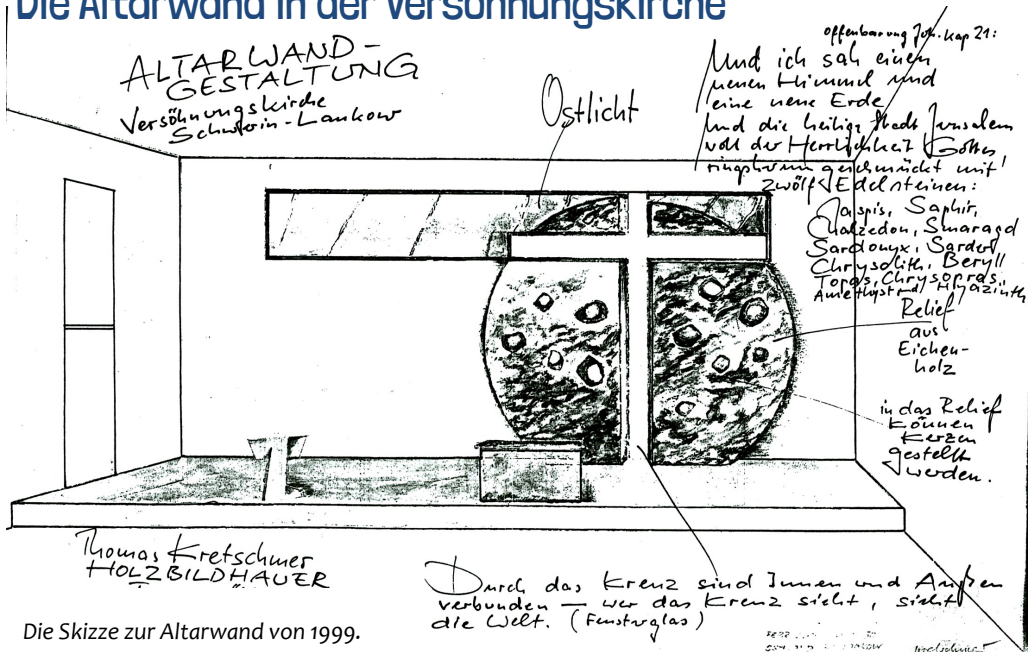 Die Altarwand in der Versöhnungskirche
ALTARWAND-
GESTALTUNG
Versöhnungskirche
Schwerin-Lankow
Ostlicht
Offenbarung Joh. Kap 21:
Und ich sah einen
neuen Himmel und
eine neue Erde
Und die heilige Stadt Jerusalem
voll der Herrlichkeit Gottes
ringsherum geschmückt mit
zwölf Edelsteinen:
Jaspis, Saphir,
Chalzedon, Smaragd
Sardonyx, Sarder
Chrysolith, Beryll
Topas, Chrysopras,
Amethyst und Hyazinth
Relief
aus
Eichen-
holz
in das Relief
können
Kerzen
gestellt
werden.
Thomas Kretschmer
HOLZBILDHAUER
Durch das Kreuz sind Innen und Außen
verbunden – wer das Kreuz sieht, sieht
die Welt. (Fensterglas)
Die Skizze zur Altarwand von 1999.